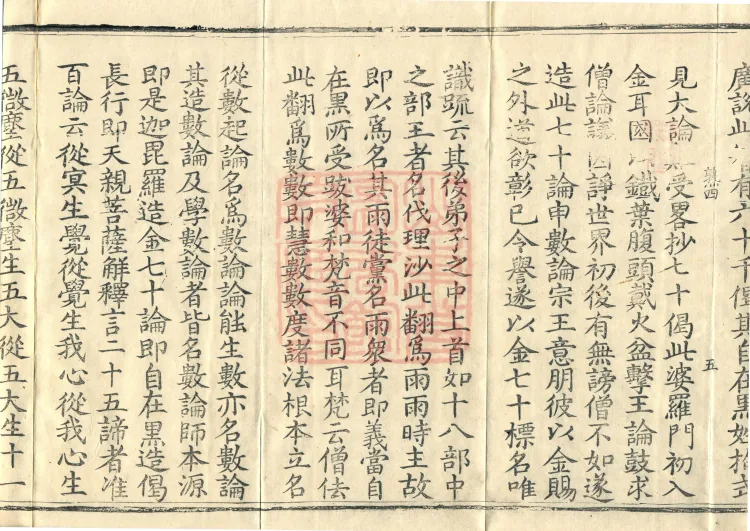 有六十千偈其自在黑姓拘式
五
見大論受畧抄七十偈此婆羅門初入
金耳國鐵葉腹頭戴火盆擊王論鼓求
僧論議因諍世界初後有無謗僧不如遂
造此七十論申數論宗王意朋彼以金賜
之外道欲彰已令譽遂以金七十標名唯
識疏云其後弟子之中上首如十八部中
之部王者名伐理沙此翻爲雨雨時主故
即以爲名其雨徒黨名雨衆者即義當自
在黑所受跋婆和梵音不同耳梵云僧佉
此翻爲數數即慧數數度諸法根本立名
從數起論名爲數論論能生數亦名數論
其造數論及學數論者皆名數論師本源
即是迦毘羅造金七十論即自在黑造偈
長行即天親菩薩解釋言二十五諦者准
百論云從冥生覺從覺生我心從我心生
五微塵從五微塵生五大從五大生十一